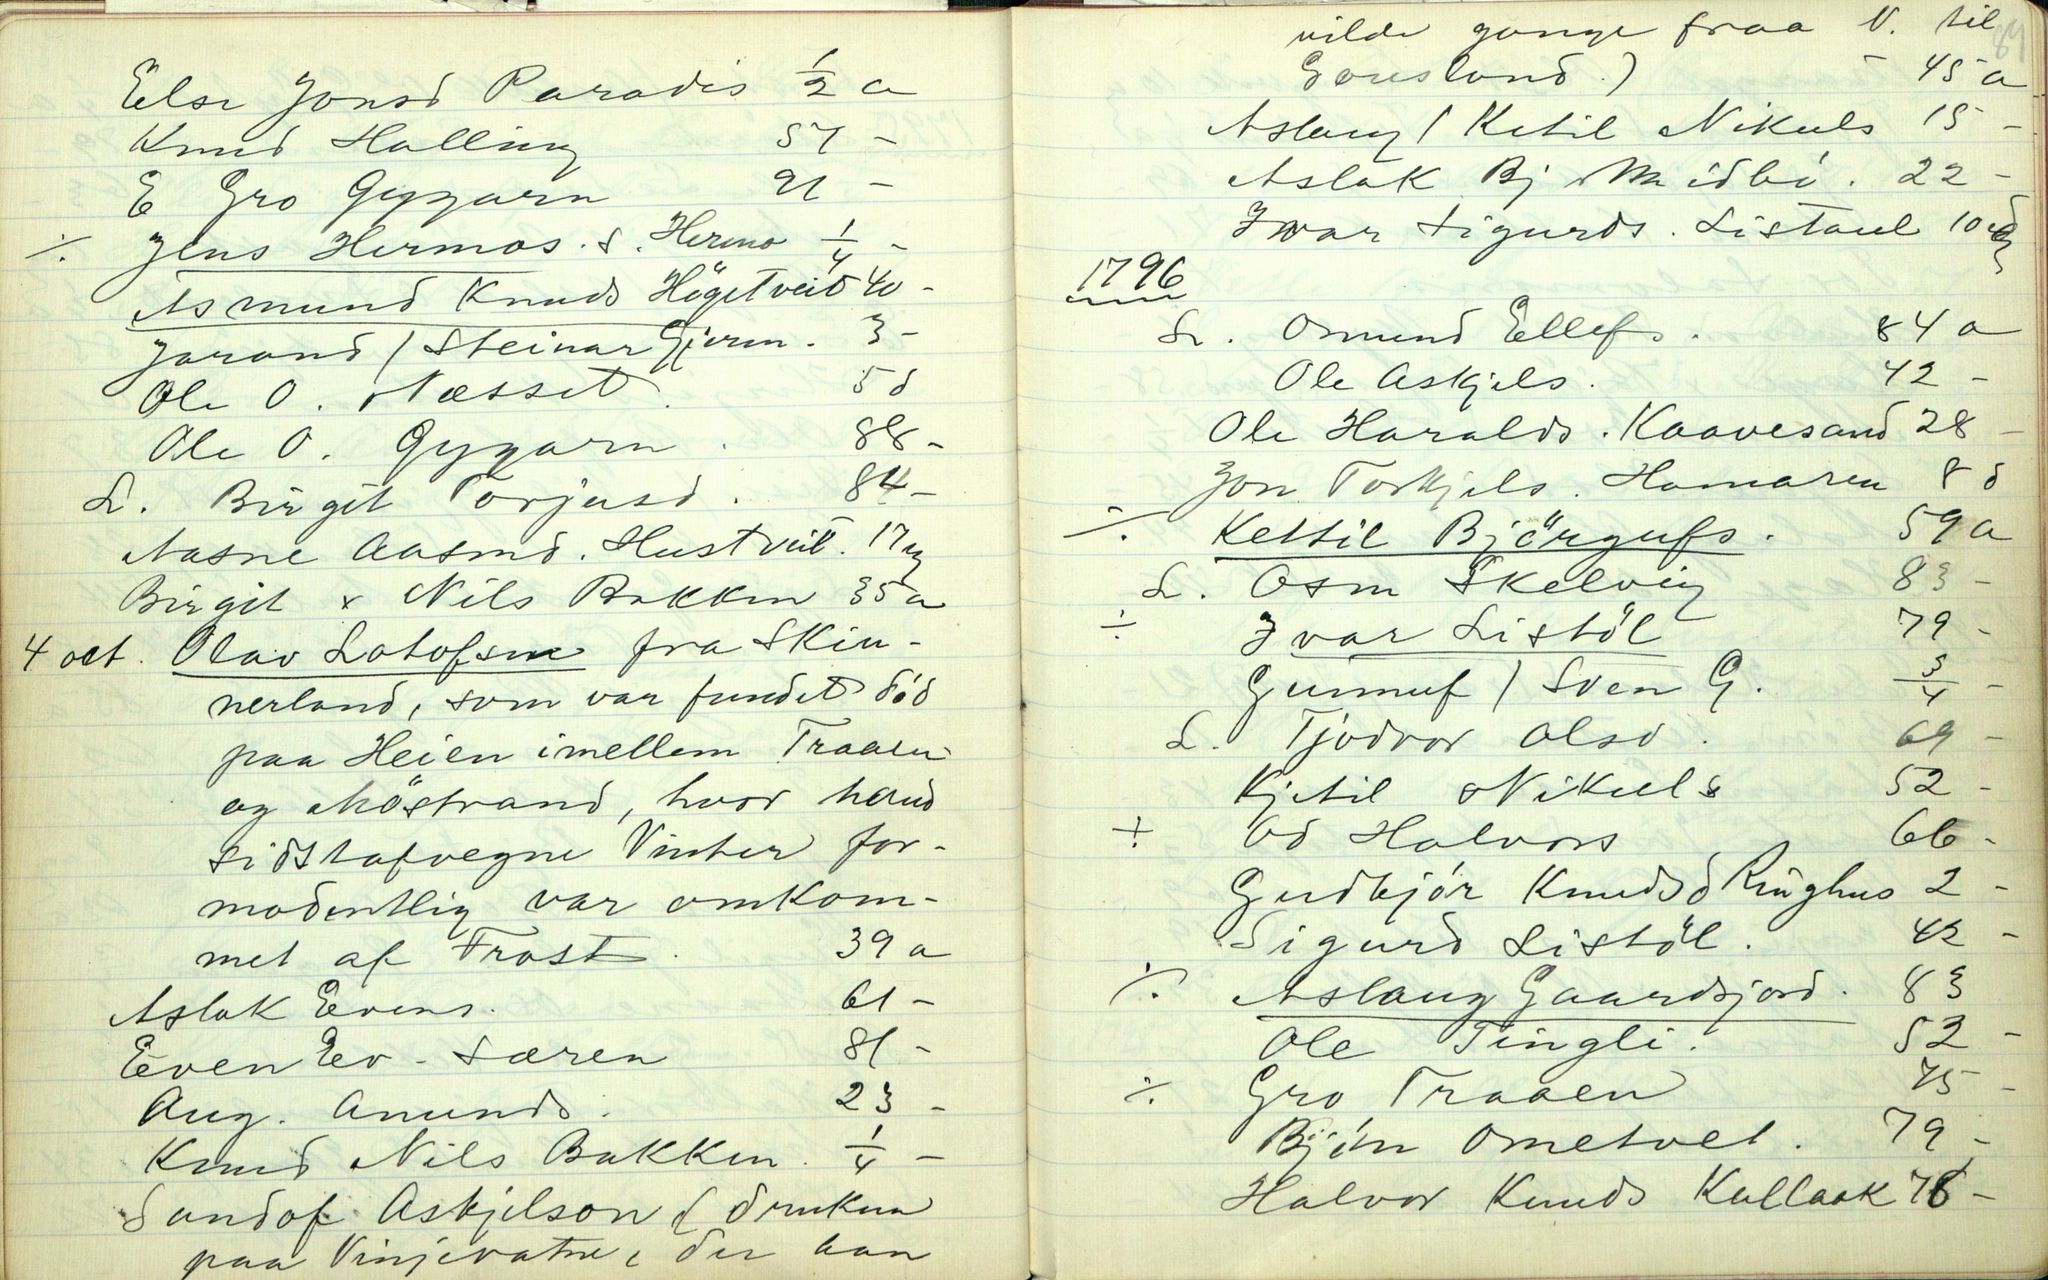 Else Jonsd Paradis 1/2 a
Knud Halling 57 -
E Gro Gyzarn 91 -
./. Jens Hermos. s. Hermo 1/4 -
Asmund Knuds Högetveit 40 -
Jarand / Steinar Gjuren. 3 -
Ole O. Næsset. 5 d
Ole O. Gyzarn. 88 -
L. Birgit Torjusd. 84 -
Aasne Aasmd. Hustveit. 17
Birgit x Nils Bakken 35 a
4 oct. Olav Lotofsen fra Skin-
nerland, som var fundet död
paa Heien imellem Traaen
og Möstrand, hvor hand
sidstafvegne Vinter for-
modentlig var omkom-
met af Frost. 39 a
Aslak Evens. 61 -
Even Ev. Særen 81 -
Aug. Anunds. 23 -
Knud Nils Bakken. 1/4 -
Sandof Askjelson (drukna
paa Vinjevatne, der han
84
vilde gange fraa V. til
Gøuslond.) - 45 a
Aslaug / Ketil Nikuls 15 -
Aslak Bj Midbö. 22 -
Ivar Sigurds. Listaul 10
1796
L. Omund Ellefs. 84 a
Ole Askjels. 42 -
Ole Haralds. Kaavesand 28 -
Jon Torkjels. Hamaren 8 d
./. Kettil Björgufs. 59 a
L. Osm Skelvig 83 -
÷ Ivar Listöl 79 -
Gunnuf / Sven G. 3/4 -
L. Tjodvor Olsd. 69 -
Kjetil Nikuls 52 -
+ Od Halvors 66 -
Gudbjör Knudsd Ringhus 2 -
Sigurd Listöl. 42 -
./. Aslaug Gaardsjord. 83
Ole Tingli. 52 -
./. Gro Traaen 75 -
Björn Ometvet. 79 -
Halvor Knuds Kallaak 78 -